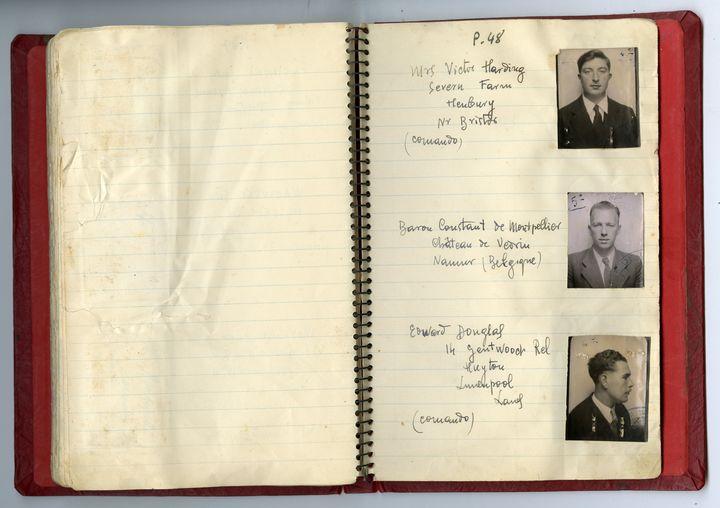 P. 48
Mrs Victor Harding
Severn Farm
Henbury
Nr Bristol
(comando)
Baron Constant de Montpellier
Château de Vedrin
Namur (Belgique)
Edward Douglas
14 Gentwood Rd
Huyton
Liverpool
Lancs
(comando)
5-